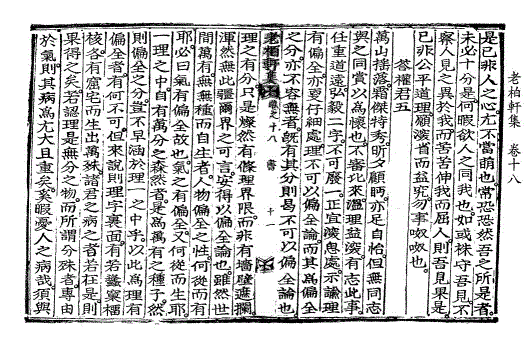 老柏軒集 卷十八
是己非人之心尤不當萌也常恐恐然吾之所是者
未必十分是何暇欲人之同我也如或株守吾見不
察人見之異於我而苦苦伸我而屈人則吾見果是
已非公平道理願浚首而益究勿事呶呶也
答權君五
萬山搖落霜傑特秀昕夕顧眄亦足自怡但無同志
與之同賞以爲懷也不審比來溫理益浚有志此事
任重道遠弘毅二字不可廢一正宜浚念處示諭理
有偏全亦宜仔細處理不可以偏全論而其爲偏全
之分亦不容無者旣有其分則曷不可以偏全論也
老柏軒集 卷之十八 書 十一
理之有分只是粲然有條理界限而非有墻壁遮攔
渾然無此疆爾界之可言安得以偏全論也雖然世
間萬有無無種而自生者人物偏全之性何從而有
耶必曰氣有偏全故也氣之有偏全又何從而生耶
一理之中自有萬分之森然者是爲萬有之種子然
則偏全之分豈不早涵於理一之中乎以此爲理有
偏全者有何不可但來說則理字裏面有若蜜窠榴
核各有窟宅而生出萬殊諸君之病之者若在是則
果得之矣若認理是無分之物而所謂分殊者專由
於氣則其病爲尤大且重矣奚暇憂人之病哉須與